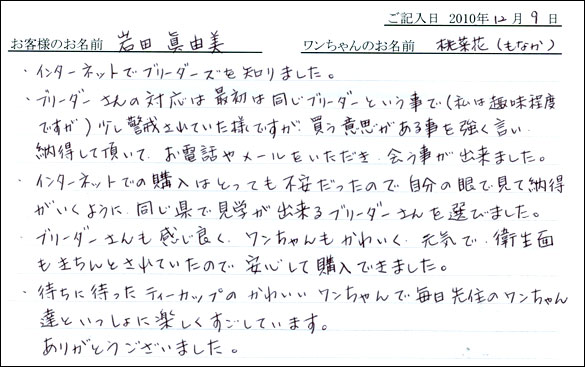 ご記入日 2010年12月9日
お客様のお名前 岩田 眞由美 ワンちゃんのお名前 桃菜花(もなか)
・インターネットでブリーダーズを知りました。
・ブリーダーさんの対応は最初は同じブリーダーという事で(私は趣味程度
ですが)少し警戒されていた様ですが、買う意思がある事を強く言い、
納得して頂いて、お電話やメールをいただき、会う事が出来ました。
・インターネットでの購入はとっても不安だったので自分の眼で見て納得
がいくように、同じ県で見学が出来るブリーダーさんを選びました。
・ブリーダーさんも感じ良く、ワンちゃんもかわいく、元気で、衛生面
もきちんとされていたので安心して購入できました。
・待ちに待ったティーカップのかわいいワンちゃんで毎日先住のワンちゃん
達といっしょに楽しくすごしています。
ありがとうございました。